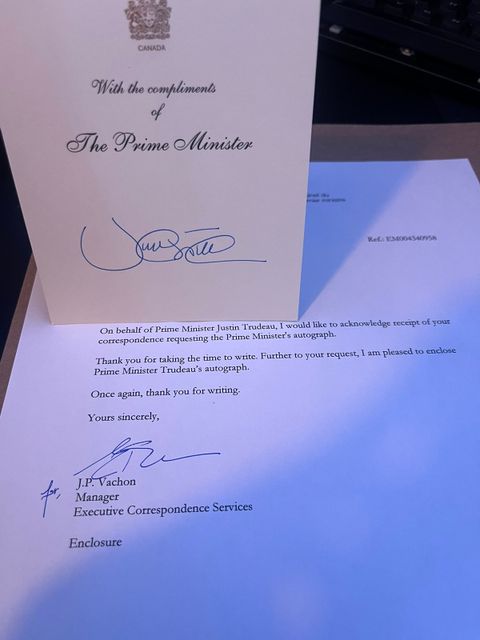 CANADA
With the compliments
of
The Prime Minister
Ref.: EM004340958
On behalf of Prime Minister Justin Trudeau, I would like to acknowledge receipt of your
correspondence requesting the Prime Minister's autograph.
Thank you for taking the time to write. Further to your request, I am pleased to enclose
Prime Minister Trudeau's autograph.
Once again, thank you for writing.
Yours sincerely,
for,
J.P. Vachon
Manager
Executive Correspondence Services
Enclosure